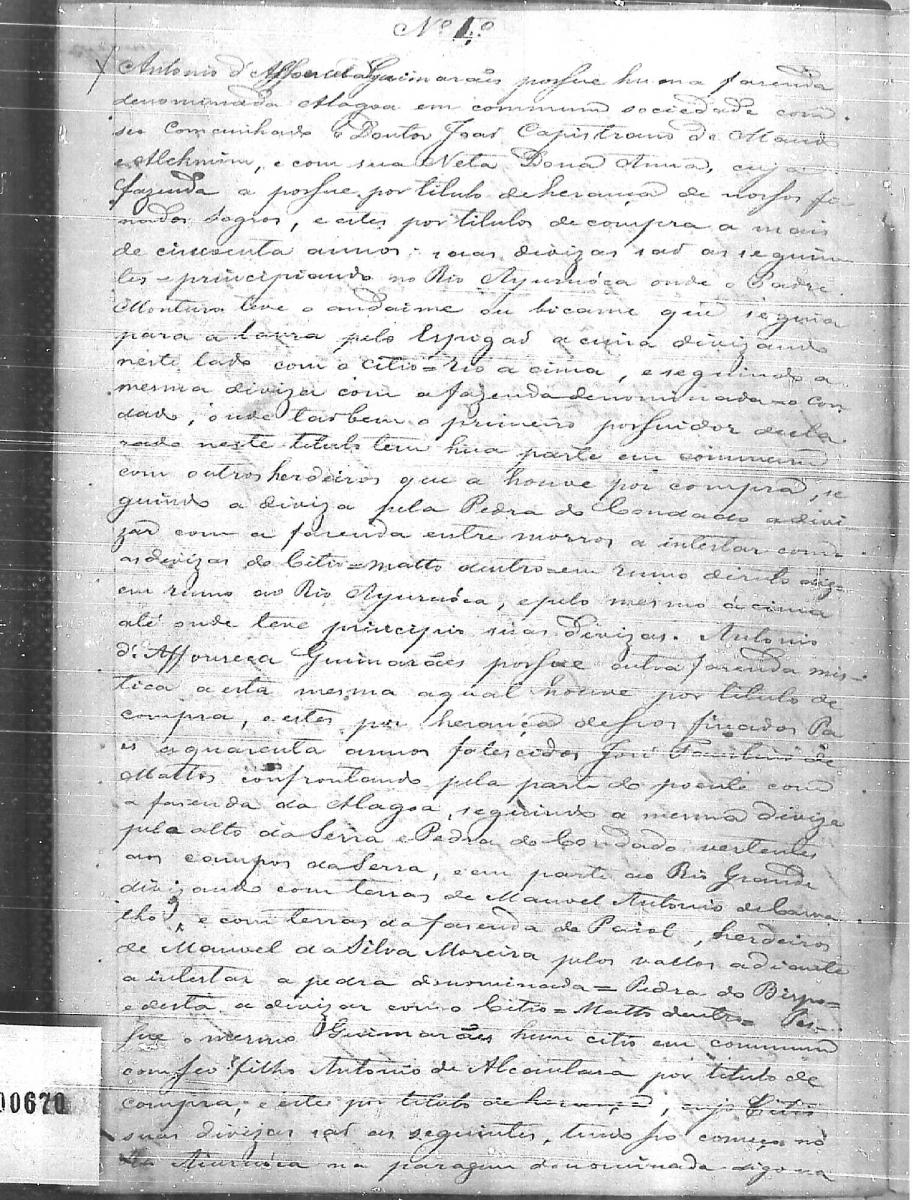 Nº 1.º
Antonio d'Affonceca Guimarães possue huma fazenda
denominada Alagoa em commum sociedade com
seo Comcunhado o Doutor Joaõ Capistrano de
e Alckmim, e com sua Neta Dona Anna, cuja
fazenda a possue por titulo de herança de nossos fi
nados Sogros, e estes por titulos de compra a mais
de cincoenta annos: suas divizas saõ as seguin
tes = principiando no Rio Ayuruóca onde o Padre
Montura teve o andaime ou bicame que seguia
para a Lavra pelo Espigaõ acima divizando
neste lado com o Citio = Rio a cima, e seguindo a
mesma diviza com a fazenda denominada = o Con
dado, onde taõbem o primeiro possuidor decla
rado neste titulo tem hua parte em commum
com outros herdeiros que a houve por compra, se
guindo a diviza pela Pedra do Condado a divi
zar com a fazenda entre morros a intestar com
as divizas do Citio = matto dentro = em rumo direito digo =
em rumo ao Rio Ayuruóca, e pelo mesmo ácima
até onde teve principio suas divizas. Antonio
d'Affonceca Guimarães possue outra fazenda mis-
tica a esta mesma a qual houve por titulo de
compra, e estes por herança de seos finados Pa
is a quarenta annos falescidos José de
Mattos confrontando pela parte do poente com
a fazenda da Alagoa, seguindo a mesma diviza
pela alto da Serra e Pedra do Condado vertentes
aos campos da Serra, e em parte ao Rio Grande
divizando com terras de Manoel Antonio de Carva
lho, e com terras da fazenda do Paiol, herdeiros
de Manoel da Silva Moreira pelos vallos adiante
a intestar a pedra denominada = Pedra do Bispo =
e desta a divizar com o Citio = Matto dentro = Pos-
sue o mesmo Guimarães hum citio em commum
com seo filho Antonio de Alcantara por titulo de
compra, e este por titulo de herança, cujo Citio
suas divizas saõ as seguintes, tendo seo começo no
Rio Aiuruóca na paragem denominada digo na
00670